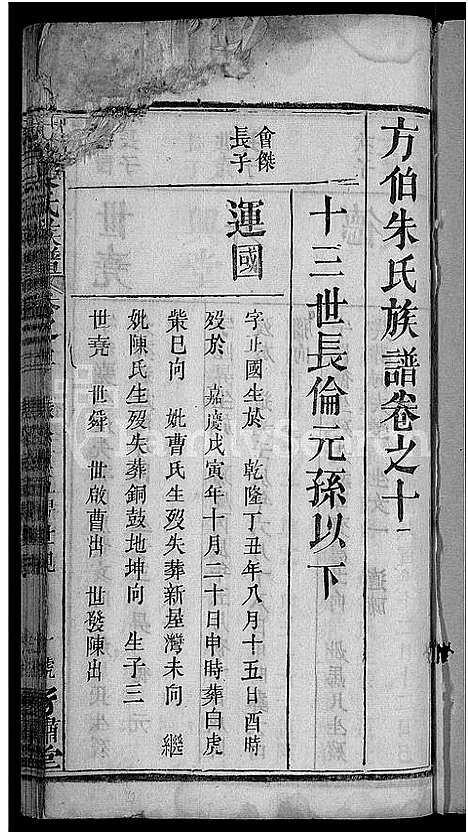 方伯朱氏族譜卷之十一
十三世長倫元孫以下
會傑
長子
運國
字止國生於 乾隆丁丑年八月十五日酉時
歿於 嘉慶戊寅年十月二十日申時葬白虎
紫巳向 妣曹氏生歿失葬新屋灣未向 繼
妣陳氏生歿失葬銅鼓地坤向 生子三
世堯 世舜 世啟曹出 世發陳出
氏族譜